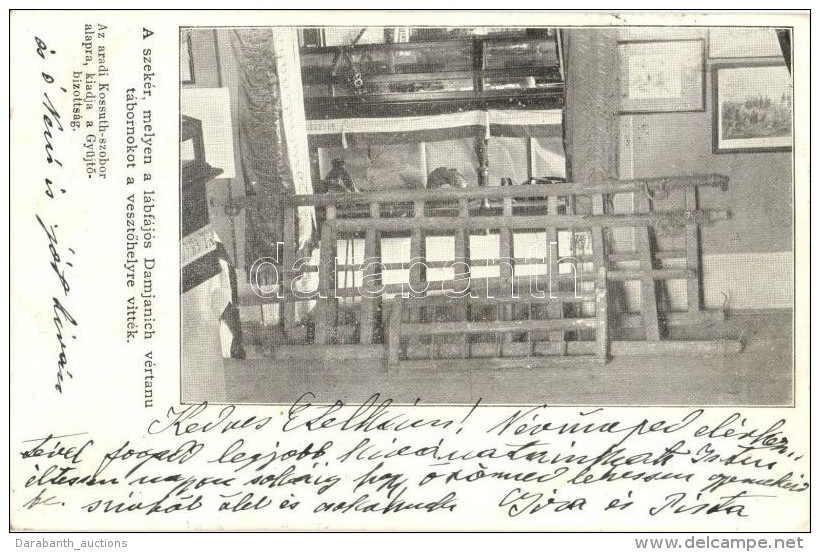 A szekér, melyen a lábfájós Damjanich vértanu
tábornokot a vesztőhelyre vitték.
Az aradi Kossuth-szobor
alapra, kiadja a Gyüjtő-
bizottság.
és ő Neni is jót kiván
darabanth
Kedves Etelkám! Névünneped elérkez-
tével fogadd legjobb kivánatainkat Isten
éltessen nagyon sokáig hogy örömed lehessen gyermekeid
szivből ölel és csókolnak Géza és Pista
Darabanth_auctions
http://www.delcampe.net